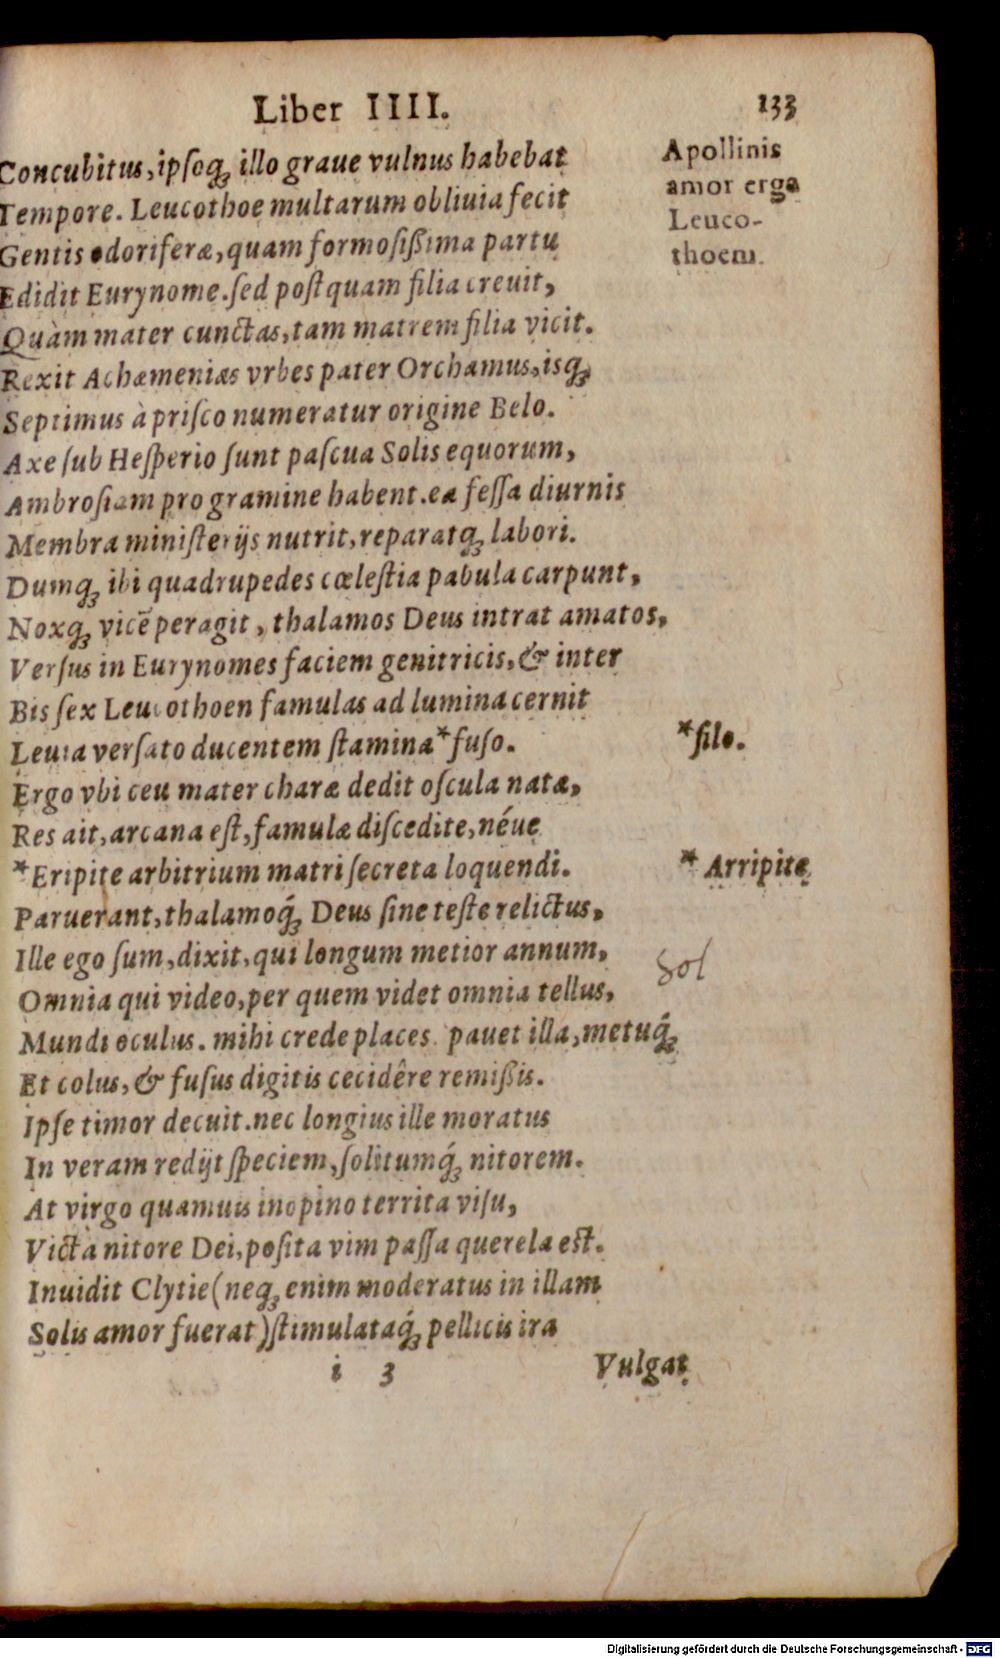 Liber IIII. 133
Concubitus, ipſoq́ꝫ illo graue vulnus habebat
Tempore. Leucothoe multarum obliuia fecit
Gentis odoriferæ, quam formoſißima partu
Edidit Eurynome. ſed poſtquam filia creuit,
Quàm mater cunctas, tam matrem filia vicit.
Rexit Achæmenias vrbes pater Orchamus, isqꝫ
Septimus à priſco numeratur origine Belo.
Axe ſub Heſperio ſunt paſcua Solis equorum,
Ambroſiam pro gramine habent. ea feſſa diurnis
Membra miniſterijs nutrit, reparatqꝫ labori.
Dumqꝫ ibi quadrupedes cœleſtia pabula carpunt,
Noxqꝫ vicē peragit, thalamos Deus intrat amatos,
Verſus in Eurynomes faciem genitricis, & inter
Bis ſex Leucothoen famulas ad lumina cernit
Leuia verſato ducentem ſtamina *fuſo.
Ergo vbi ceu mater charæ dedit oſcula natæ,
Res ait, arcana eſt, famulæ diſcedite, néue
*Eripite arbitrium matri ſecreta loquendi.
Paruerant, thalamoq́ꝫ Deus ſine teſte relictus,
Ille ego ſum, dixit, qui longum metior annum,
Omnia qui video, per quem videt omnia tellus,
Mundi oculus. mihi crede places. pauet illa, metuq́ꝫ
Et colus, & fuſus digitis cecidêre remißis.
Ipſe timor decuit. nec longius ille moratus
In veram redijt ſpeciem, ſolitumq́ꝫ nitorem.
At virgo quamuis inopino territa viſu,
Victa nitore Dei, poſita vim paſſa querela est.
Inuidit Clytie (neqꝫ enim moderatus in illam
Solis amor fuerat) ſtimulataq́ꝫ pellicis ira
i 3 Vulgat
Apollinis
amor erga
Leuco-
thoem.
*filo.
* Arripite
Sol
Digitalisierung gefördert durch die Deutsche Forschungsgemeinschaft - DFG